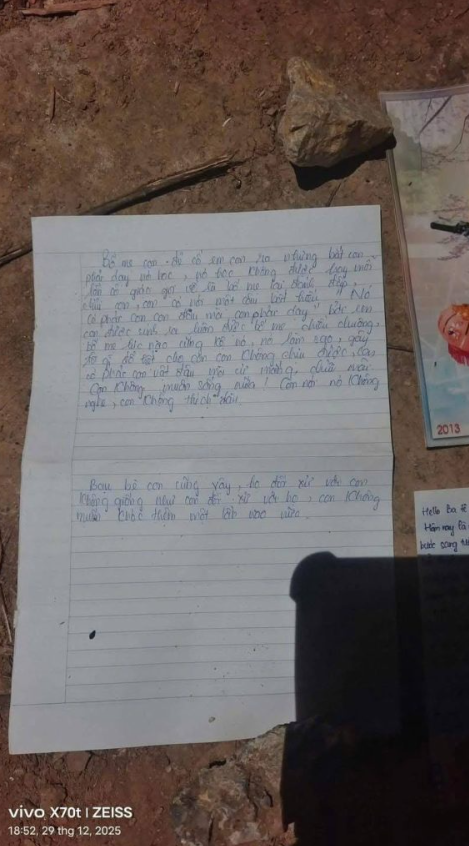 Bố mẹ con đẻ có em con ra nhưng bắt con
phải dạy nó học, nó học không được hay mỗi
lần cô giáo gọi về là bố mẹ lại đánh đập,
chửi con, con có nói một câu bất hiếu " Nó
có phải con con đâu mà con phải dạy" Đứa em
con được sinh ra luôn được bố mẹ chiều chuộng,
bố mẹ lúc nào cũng kệ nó, nó làm sao, gây
ra gì đổ tất cho con con không chịu được,
có phải con vật đâu mà cứ mắng, chửi
Con không muốn sống nữa! Con nói nó không
nghe, con không thích đâu.
Bạn bè con cũng vậy, họ đối xử với con
không giống như con đối xử với họ, con không
muốn khóc thêm một lần nào nữa.
2013
Hello Ba
Hôm nay là
bước sang
vivo X70t | ZEISS
18:52, 29 thg 12, 2025